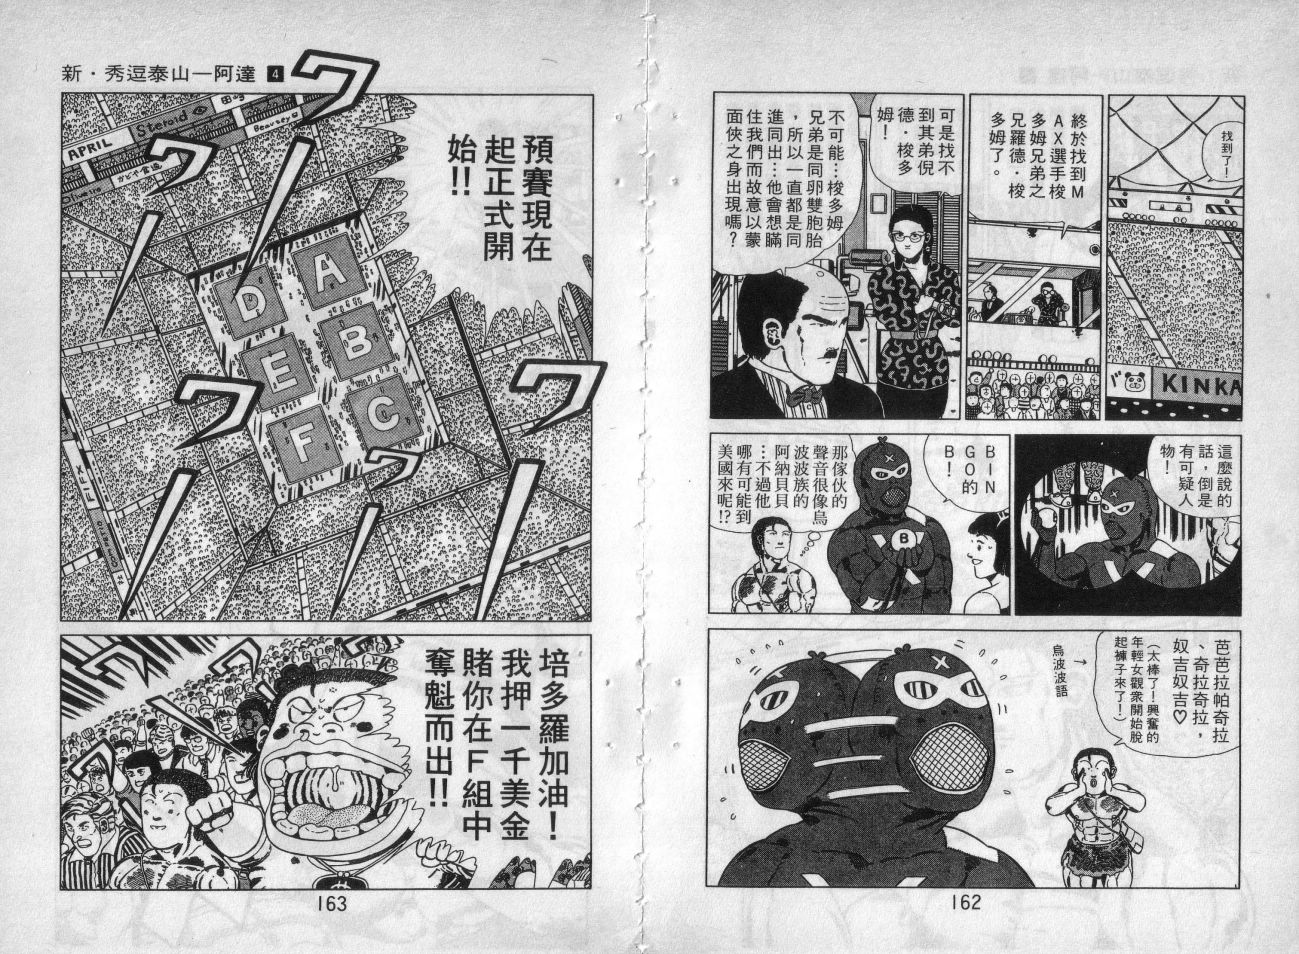 找到了!
終於找到M
AX選手梭
多姆兄弟之
兄羅德·梭
多姆了。
可是找不
到其弟倪
德·梭多
姆!
不可能…梭多姆
兄弟是同卵雙胞胎
，所以一直都是同
進同出…他會想瞞
住我們而故意以蒙
面俠之身出現嗎?
KINKA
這麼說的
話，倒是
有可疑人
物!
BIN
GO的
B!
B
那傢伙的
聲音很像烏
波波族的
阿納貝貝
…不過他
哪有可能到
美國來呢!?
芭芭拉帕奇拉
、奇拉奇拉，
奴吉奴吉♡
(太棒了!興奮的
年輕女觀衆開始脫
起褲子來了!)
↑
烏波波語
162
新·秀逗泰山—阿達 4
ワワワワワ
APRIL
Steroid
預賽現在
起正式開
始!!
A
B
C
D
E
F
培多羅加油!
我押一千美金
賭你在F組中
奪魁而出!!
163